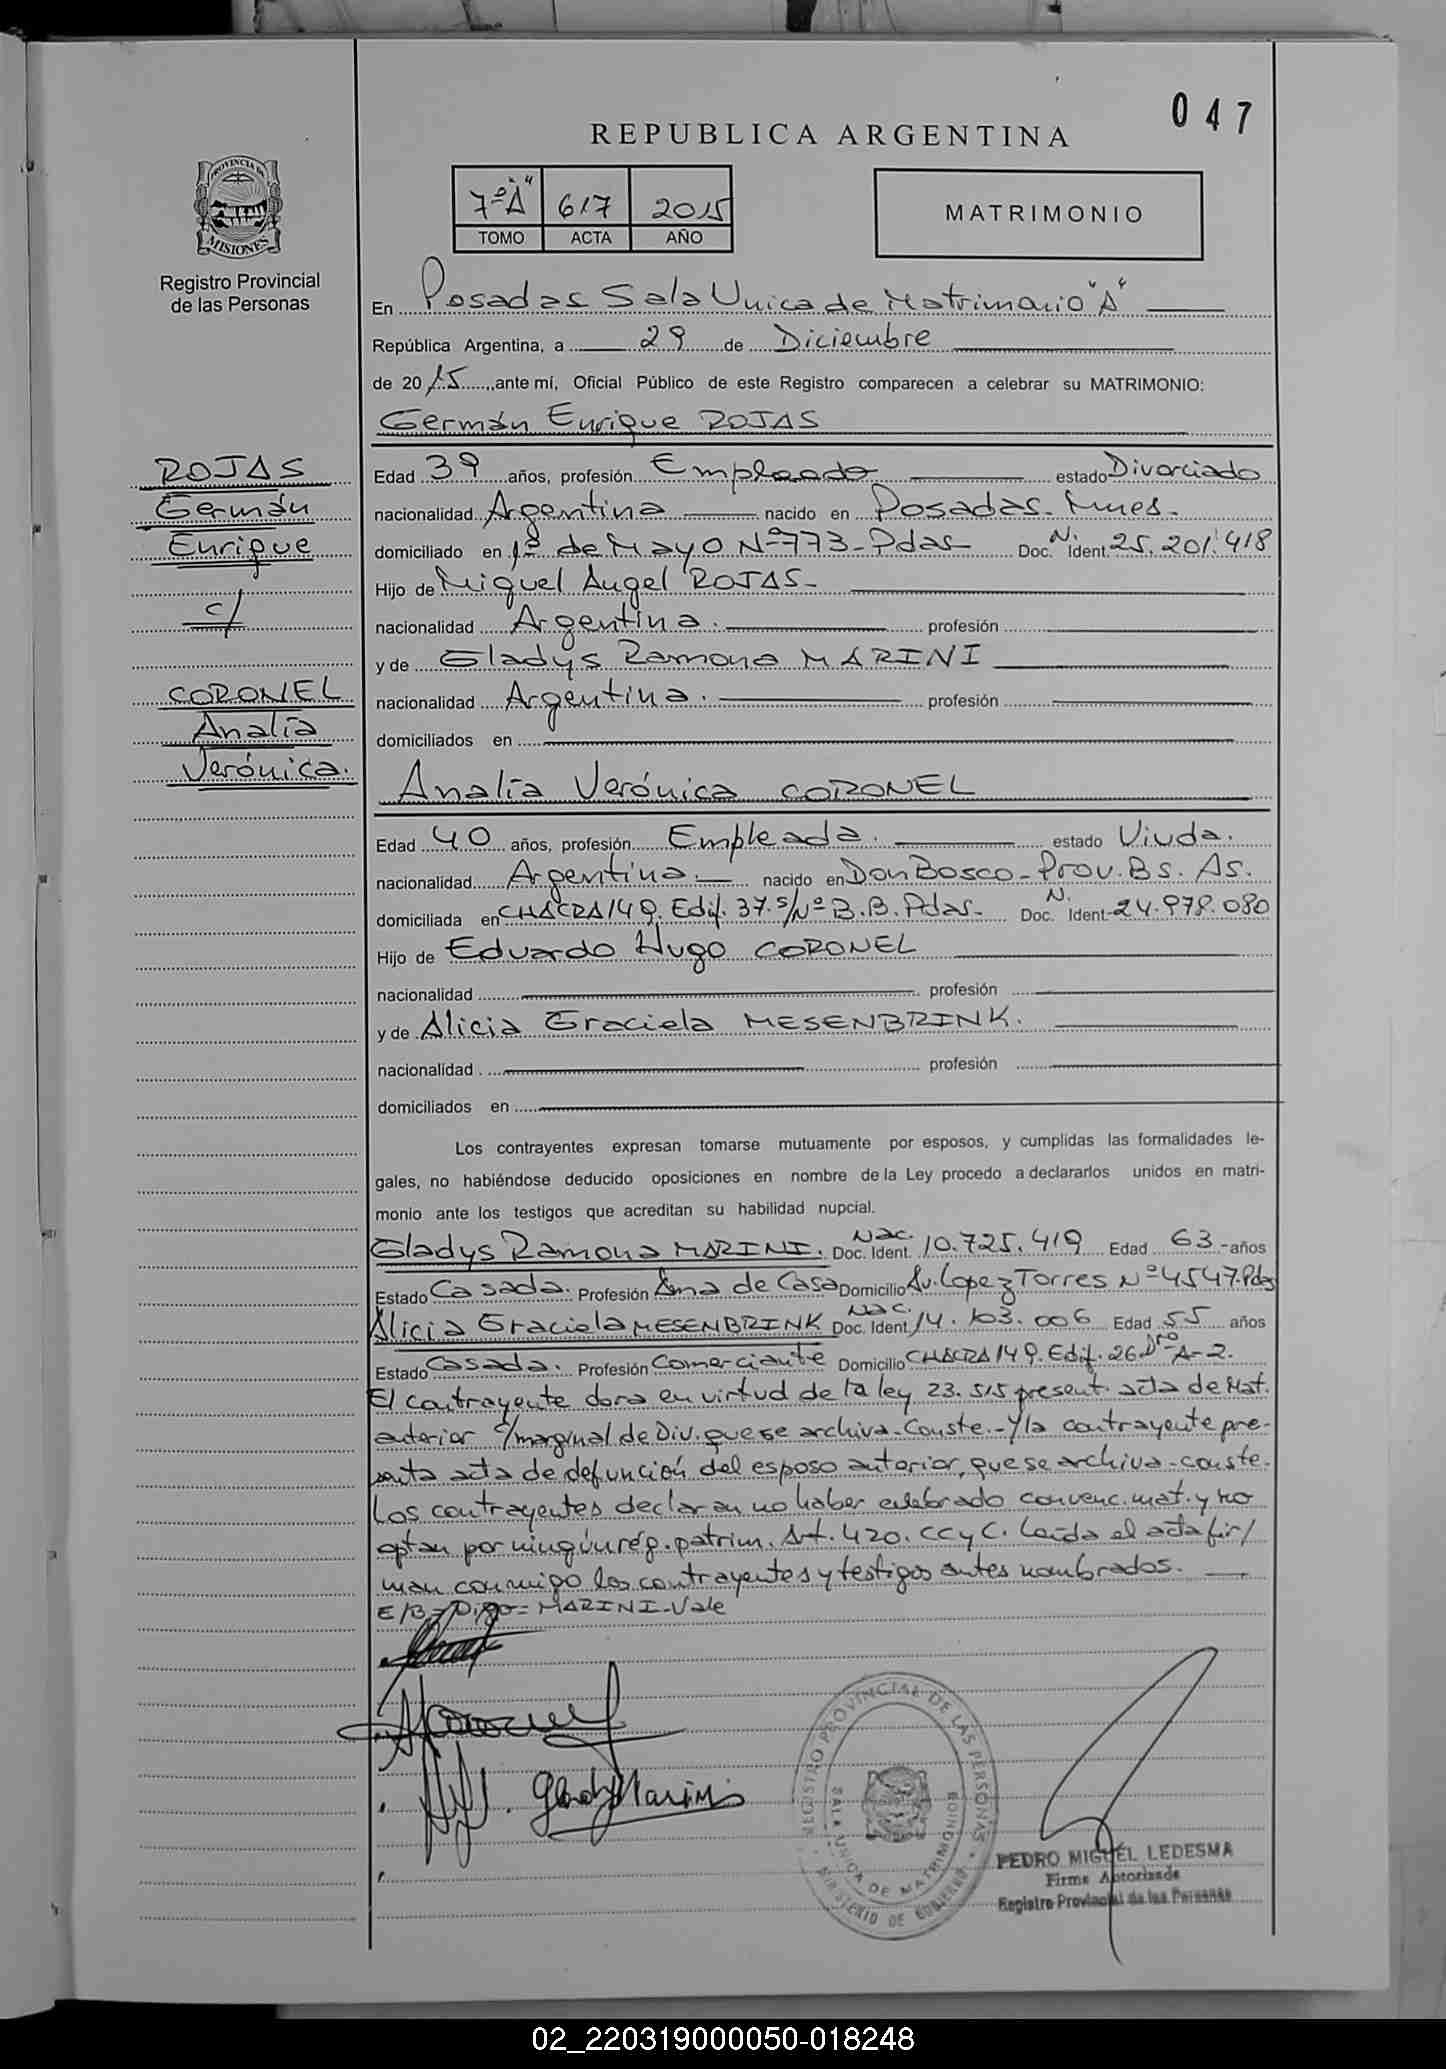 047
REPUBLICA ARGENTINA
PROVINCIA DE
MISIONES
Registro Provincial
de las Personas
7º "A" 617 2015
TOMO ACTA AÑO
MATRIMONIO
En Posadas Sala Unica de Matrimonio "A"
República Argentina, a 29 de Diciembre
de 2015, ante mí, Oficial Público de este Registro comparecen a celebrar su MATRIMONIO:
Germán Enrique ROJAS
ROJAS
Germán
Enrique
c/
CORONEL
Analía
Verónica.
Edad 39 años, profesión Empleado estado Divorciado
nacionalidad Argentina nacido en Posadas. Mnes.
domiciliado en 1º de Mayo Nº 773 - Pdas - Doc. N. Ident. 25.201.418
Hijo de Miguel Angel ROJAS -
nacionalidad Argentina. profesión
y de Gladys Ramona MARINI
nacionalidad Argentina. profesión
domiciliados en
Analía Verónica CORONEL
Edad 40 años, profesión Empleada. estado Viuda.
nacionalidad Argentina. nacido en Don Bosco - Prov. Bs. As.
domiciliada en CHACRA 149. Edif. 37. s/Nº B.B. Pdas - Doc. N. Ident. 24.978.080
Hijo de Eduardo Hugo CORONEL
nacionalidad profesión
y de Alicia Graciela MESENBRINK.
nacionalidad profesión
domiciliados en
Los contrayentes expresan tomarse mutuamente por esposos, y cumplidas las formalidades le-
gales, no habiéndose deducido oposiciones en nombre de la Ley procedo a declararlos unidos en matri-
monio ante los testigos que acreditan su habilidad nupcial.
Gladys Ramona MARINI. Doc. Nac. Ident. 10.725.419 Edad 63 - años
Estado Casada. Profesión Ama de Casa Domicilio Av. Lopez Torres Nº 4547. Pdas
Alicia Graciela MESENBRINK Doc. Nac. Ident. 14.103.006 Edad 55 años
Estado Casada. Profesión Comerciante Domicilio CHACRA 149. Edif. 26. Dro - A-2.
El contrayente dora en virtud de la ley 23.515 present. acta de Mat.
anterior c/marginal de Div. que se archiva - Conste. - Y la contrayente pre-
senta acta de defunción del esposo anterior, que se archiva - conste.
Los contrayentes declaran no haber celebrado convenc. mat. y no
optan por ningún rég. patrim. Art. 420. CC y C. Leída el acta fir/
man conmigo los contrayentes y testigos antes nombrados.
E/B = Digo = MARINI - Vale
Gladys Marini
REGISTRO PROVINCIAL DE LAS PERSONAS
SALA UNICA DE MATRIMONIO
MINISTERIO DE GOBIERNO
PEDRO MIGUEL LEDESMA
Firma Autorizada
Registro Provincial de las Personas
02_220319000050-018248